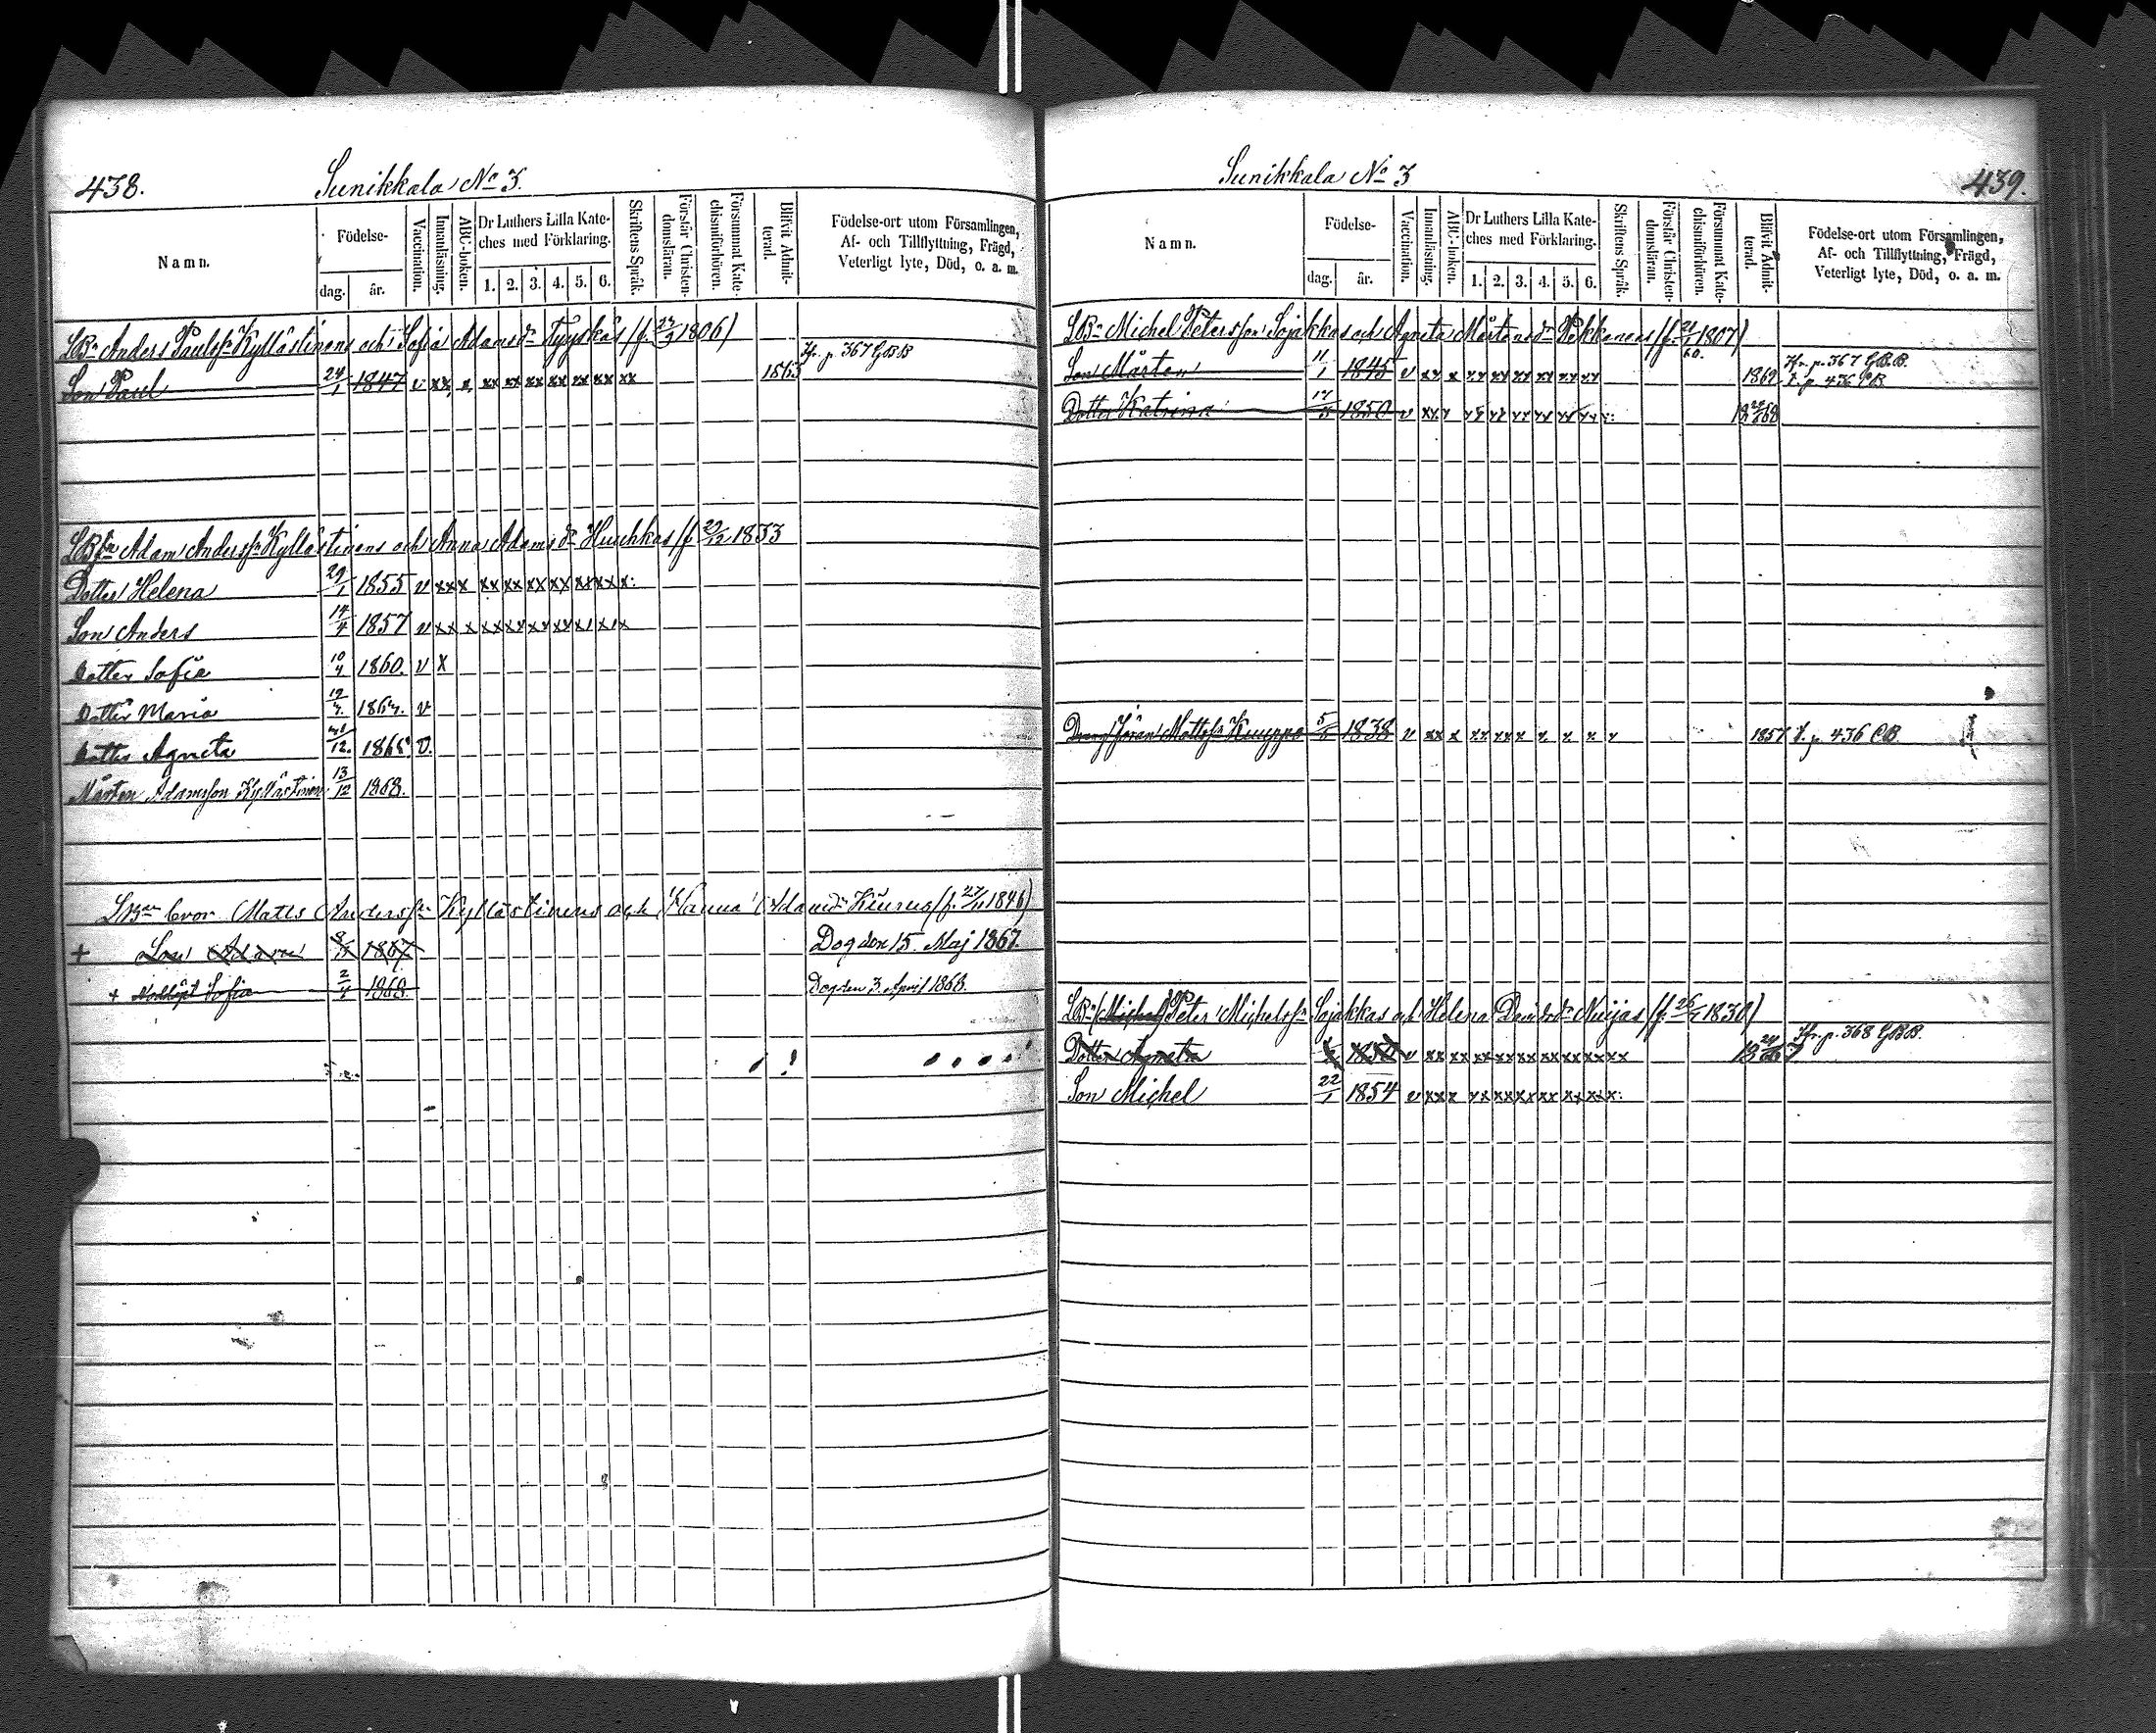 438.
Sunikkala No 3.
Namn.
Födelse-
dag.
år.
Vaccination.
Innanläsning.
ABC-boken.
Dr Luthers Lilla Kate-
ches med Förklaring.
1. 2. 3. 4. 5. 6.
Skriftens Språk.
Förstår Christen-
domsläran.
Försummat Kate-
chismiförhören.
Blifvit Admit-
terad.
Födelse-ort utom Församlingen,
Af- och Tillflyttning, Frägd,
Veterligt lyte, Död, o. a. m.
LBn Anders Paulsn Kyllästinens och Sofia Adamsdr Tyyskäs (f. 1806)
Son Paul 24/1 1847 v xx x xx xx xx xx xx xx xx 1863 Fr. p. 367 GBB
Adam Anderssn Kyllästinens och Anna Adamsdr Huuhkas (f. 29/12 1833
Dotter Helena 29/1 1855 v xx x xx xx xx xx xx xx x:
Son Anders 14/4 1857 v xx x xx xx xx xx xx xx x
Dotter Sofia 10/4 1860. v x
Dotter Maria v
Dotter Agneta 12. 1865. v.
Mårten Adamsson Kyllästinen 13/12 1868.
LBn bror Matts Anderssn Kyllästinens och Hanna Adamsdr Kiurus (f. 27/11 1846)
+ Son Adam 1867 Dog den 15. Maj 1867.
+ Noddöpt Sofia 2/4 1868. Dog den 3. April 1868.
Sunikkala No 3
439.
Namn.
Födelse-
dag.
år.
Vaccination.
Innanläsning.
ABC-boken.
Dr Luthers Lilla Kate-
ches med Förklaring.
1. 2. 3. 4. 5. 6.
Skriftens Språk.
Förstår Christen-
domsläran.
Försummat Kate-
chismiförhören.
Blifvit Admit-
terad.
Födelse-ort utom Församlingen,
Af- och Tillflyttning, Frägd,
Veterligt lyte, Död, o. a. m.
LBn Michel Petersson Sojakkas och Agneta Mårtensdr Pekkanens (f. 21/1 1807)
60.
Son Mårten 11/1 1845 v xx x xx xx xx xx xx xx 1862 Fr. p. 367 GBB.
t. p. 436 CB
Dotter Katrina 1850 v xx x xx xx xx xx xx xx x: 1868
Dräng Jöran Mattssn Kuuppo 5/5 1838 v xx x xx xx x x x x x 1857 t. p. 436 CB
LBn (Michel) Peter Michelssn Sojakkas och Helena Davidsdr Nuijas (f. 1830)
Dotter Agneta 1850 v xx xx xx xx xx xx xx xx xx 1867 Fr. p. 368 GBB.
Son Michel 22/1 1854 v xx x xx xx xx xx xx xx x: